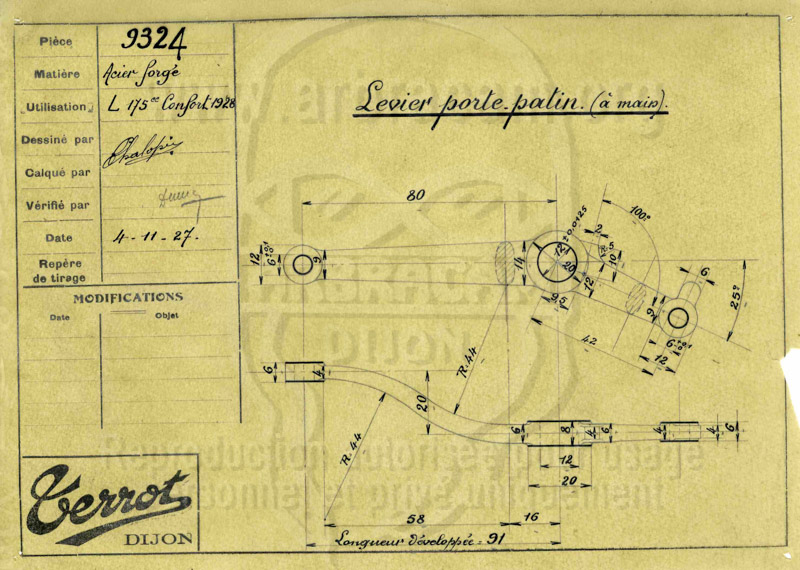 Pièce 9324
Matière Acier forgé
Utilisation L 175cc Confort 1928
Dessiné par
Calqué par
Vérifié par
Date 4-11-27.
Repère
de tirage
MODIFICATIONS
Date Objet
Levier porte-patin. (à main).
80
12 ±0.0125
100°
2
5
10
12
6 ±0.1
9
14
12
20
12
9,5
42
6
25°
9
6 ±0.1
12
6
4
20
R.44
R.44
6
8
4
6
4
4
6
12
20
58
16
Longueur développée = 91
Terrot
DIJON
Reproduction autorisée pour usage
personnel et privé uniquement